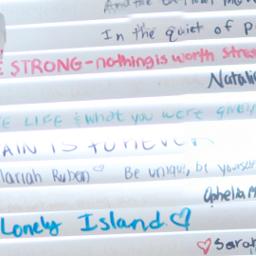 And the
In the quiet of p
E STRONG-nothing is worth stres
Natalie
E LIFE & what you were given
AIN IS FOREVER
Mariah Ruben Be unique, be yourself
Ophelia M
Lonely Island ♡
♡ Sarah